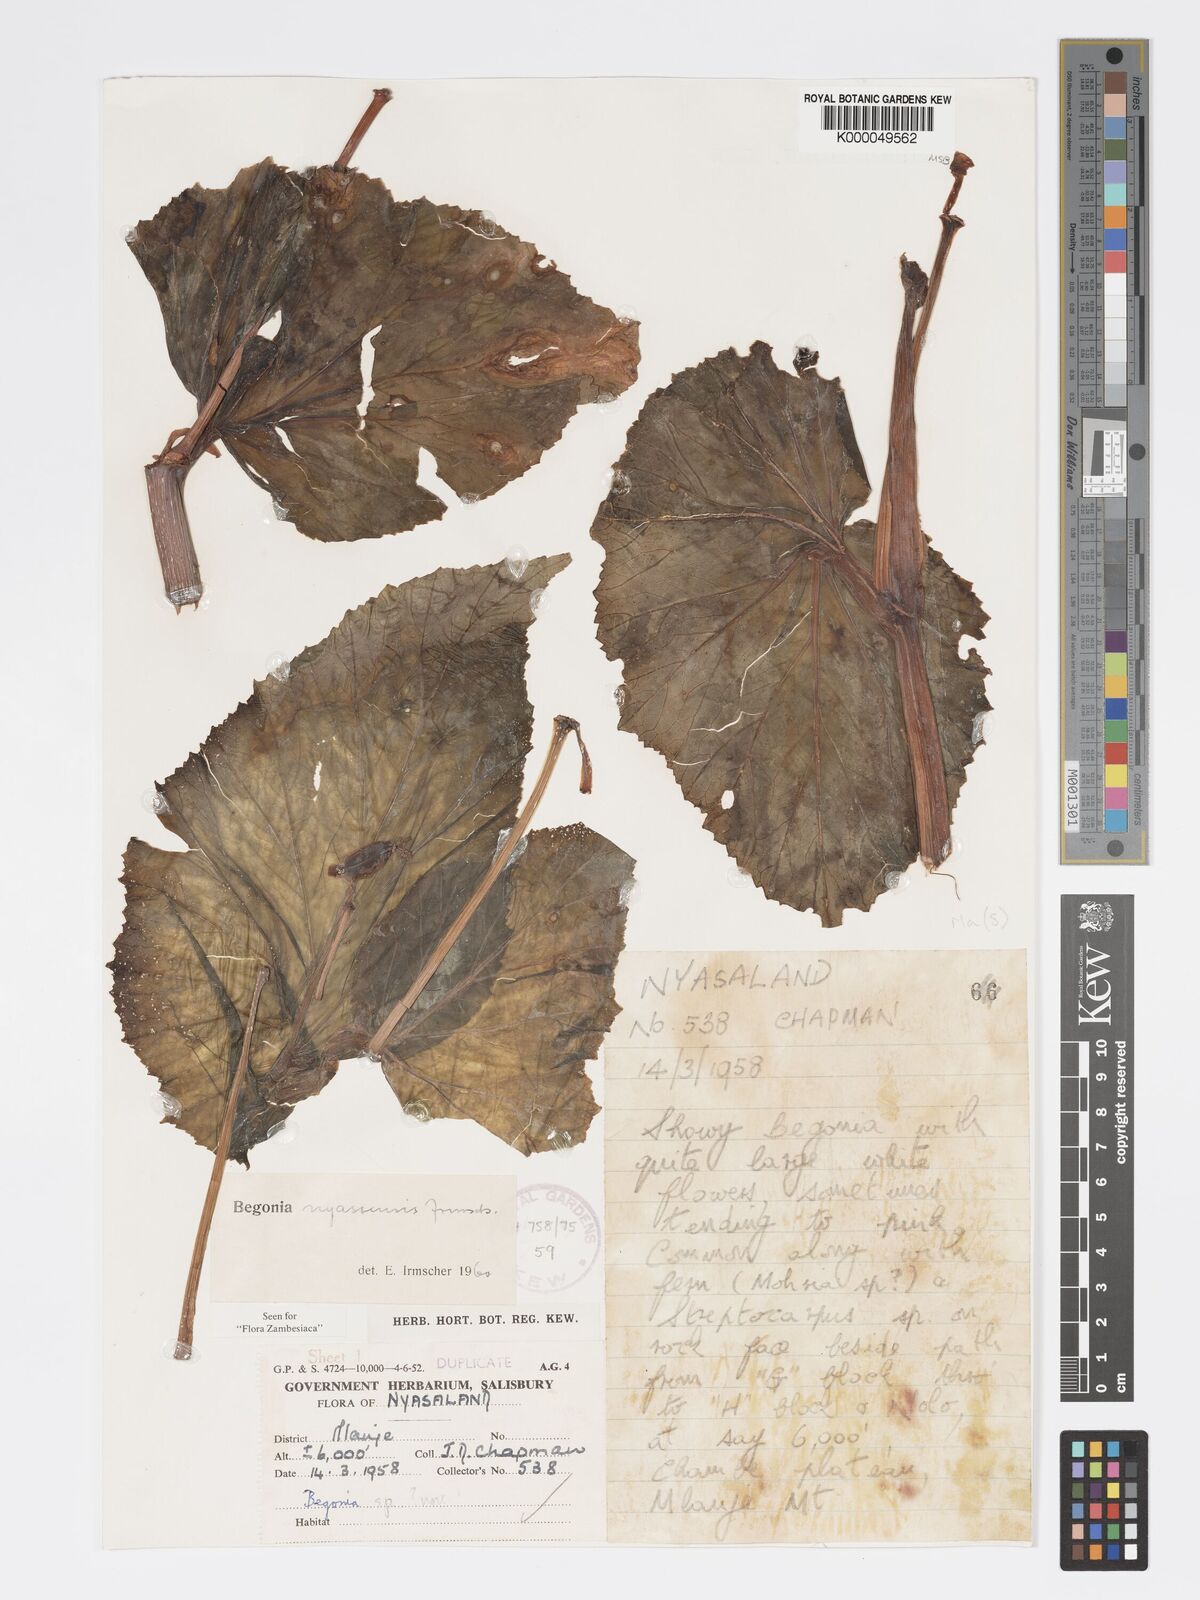 ROYAL BOTANIC GARDENS KEW
K000049562
MSB
Ma(S)
NYASALAND
No. 538 CHAPMAN
14/3/1958
Showy Begonia with
quite large white
flowers, sometimes
tending to pink.
Common along with
fern (Mohria sp?) &
Streptocarpus sp. on
rock face beside path
from "G" block hut
to "H" block
at say 6,000',
Chambe plateau,
Mlanje Mt
Begonia nyassensis Irmsch.
det. E. Irmscher 1960
GARDENS
758/75
59
KEW
Seen for
"Flora Zambesiaca"
HERB. HORT. BOT. REG. KEW.
Sheet 1
G.P. & S. 4724—10,000—4-6-52. DUPLICATE A.G. 4
GOVERNMENT HERBARIUM, SALISBURY
FLORA OF NYASALAND
District Mlanje No.
Alt. ± 6,000' Coll. J.D. Chapman
Date 14.3.1958 Collector's No. 538
Begonia sp. ? nov
Habitat
inches
centimeters
Density
Don Williams
M001301
KEW
Royal Botanic Gardens
copyright reserved
0 1 2 3 4 5 6 7 8 9 10
cm